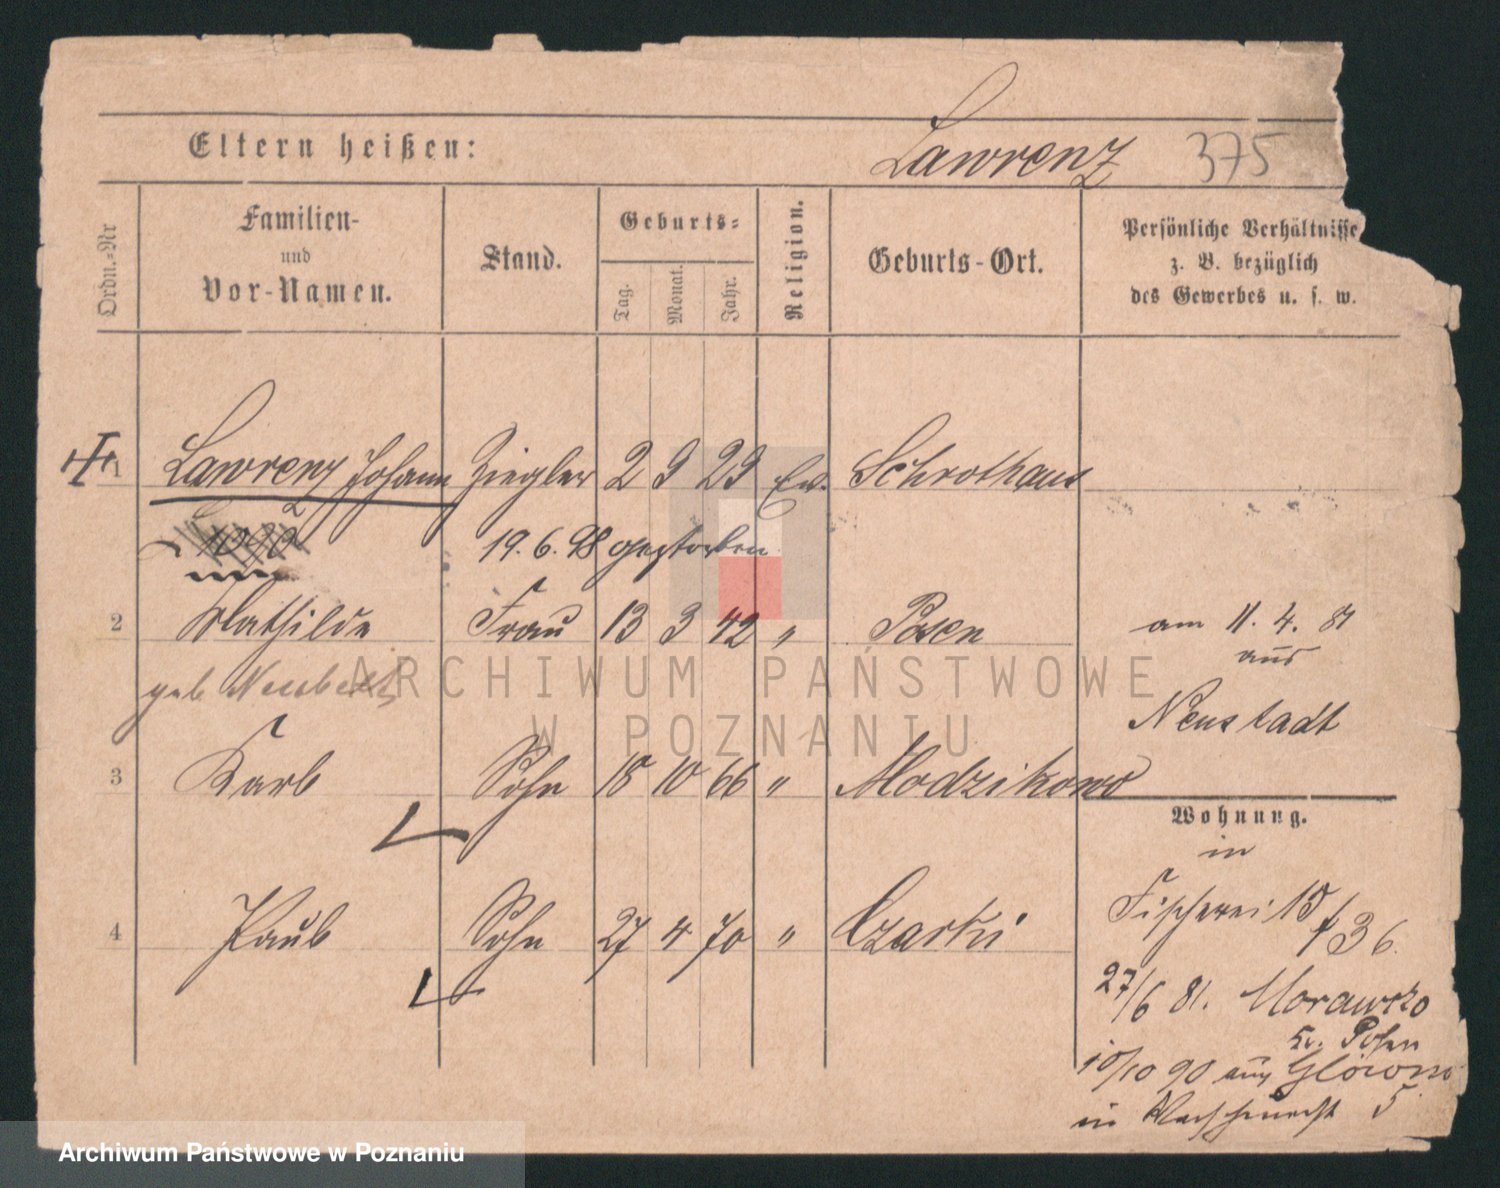 Eltern heißen:
Lawrenz 375
Ordn.=Nr
Familien-
und
Vor-Namen.
Stand.
Geburts=
Tag.
Monat.
Jahr.
Religion.
Geburts-Ort.
Persönliche Verhältnisse
z. B. bezüglich
des Gewerbes u. s. w.
1 Lawrenz Johann Ziegler 2 9 29 Ev. Schrothaus
19. 6. 98 gestorben
2 Mathilde Frau 13 3 42 " Posen
geb
am 11. 4. 81
aus
Neustadt
3 Karl Sohn 18 10 66 " Modzikowo
Wohnung.
in
Fischerei 15
36.
4 Paul Sohn 27 4 70 " Czarki
27/6 81. Morawsko
Kr. Posen
10/10 90 aus Glowno
in 5
ARCHIWUM PAŃSTWOWE
W POZNANIU
Archiwum Państwowe w Poznaniu